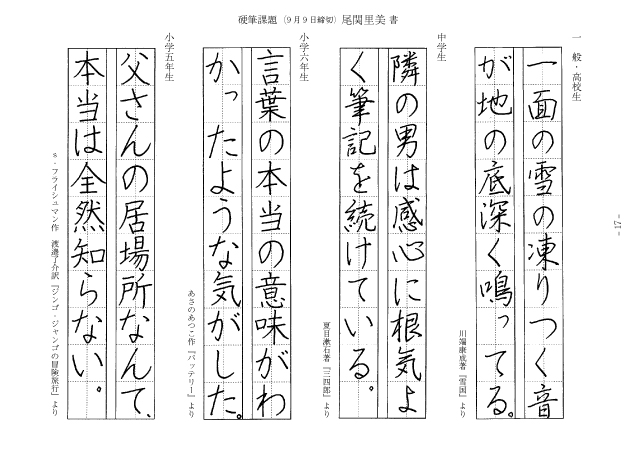 硬筆課題（９月９日締切）尾関里美 書
一般・高校生
一面の雪の凍りつく音
が地の底深く鳴ってる。
川端康成著『雪国』より
中学生
隣の男は感心に根気よ
く筆記を続けている。
夏目漱石著『三四郎』より
小学六年生
言葉の本当の意味がわ
かったような気がした。
あさのあつこ作『バッテリー』より
小学五年生
父さんの居場所なんて、
本当は全然知らない。
s・フライシュマン作　渡邉了介訳『ジンゴ・ジャンゴの冒険旅行』より
- 17 -